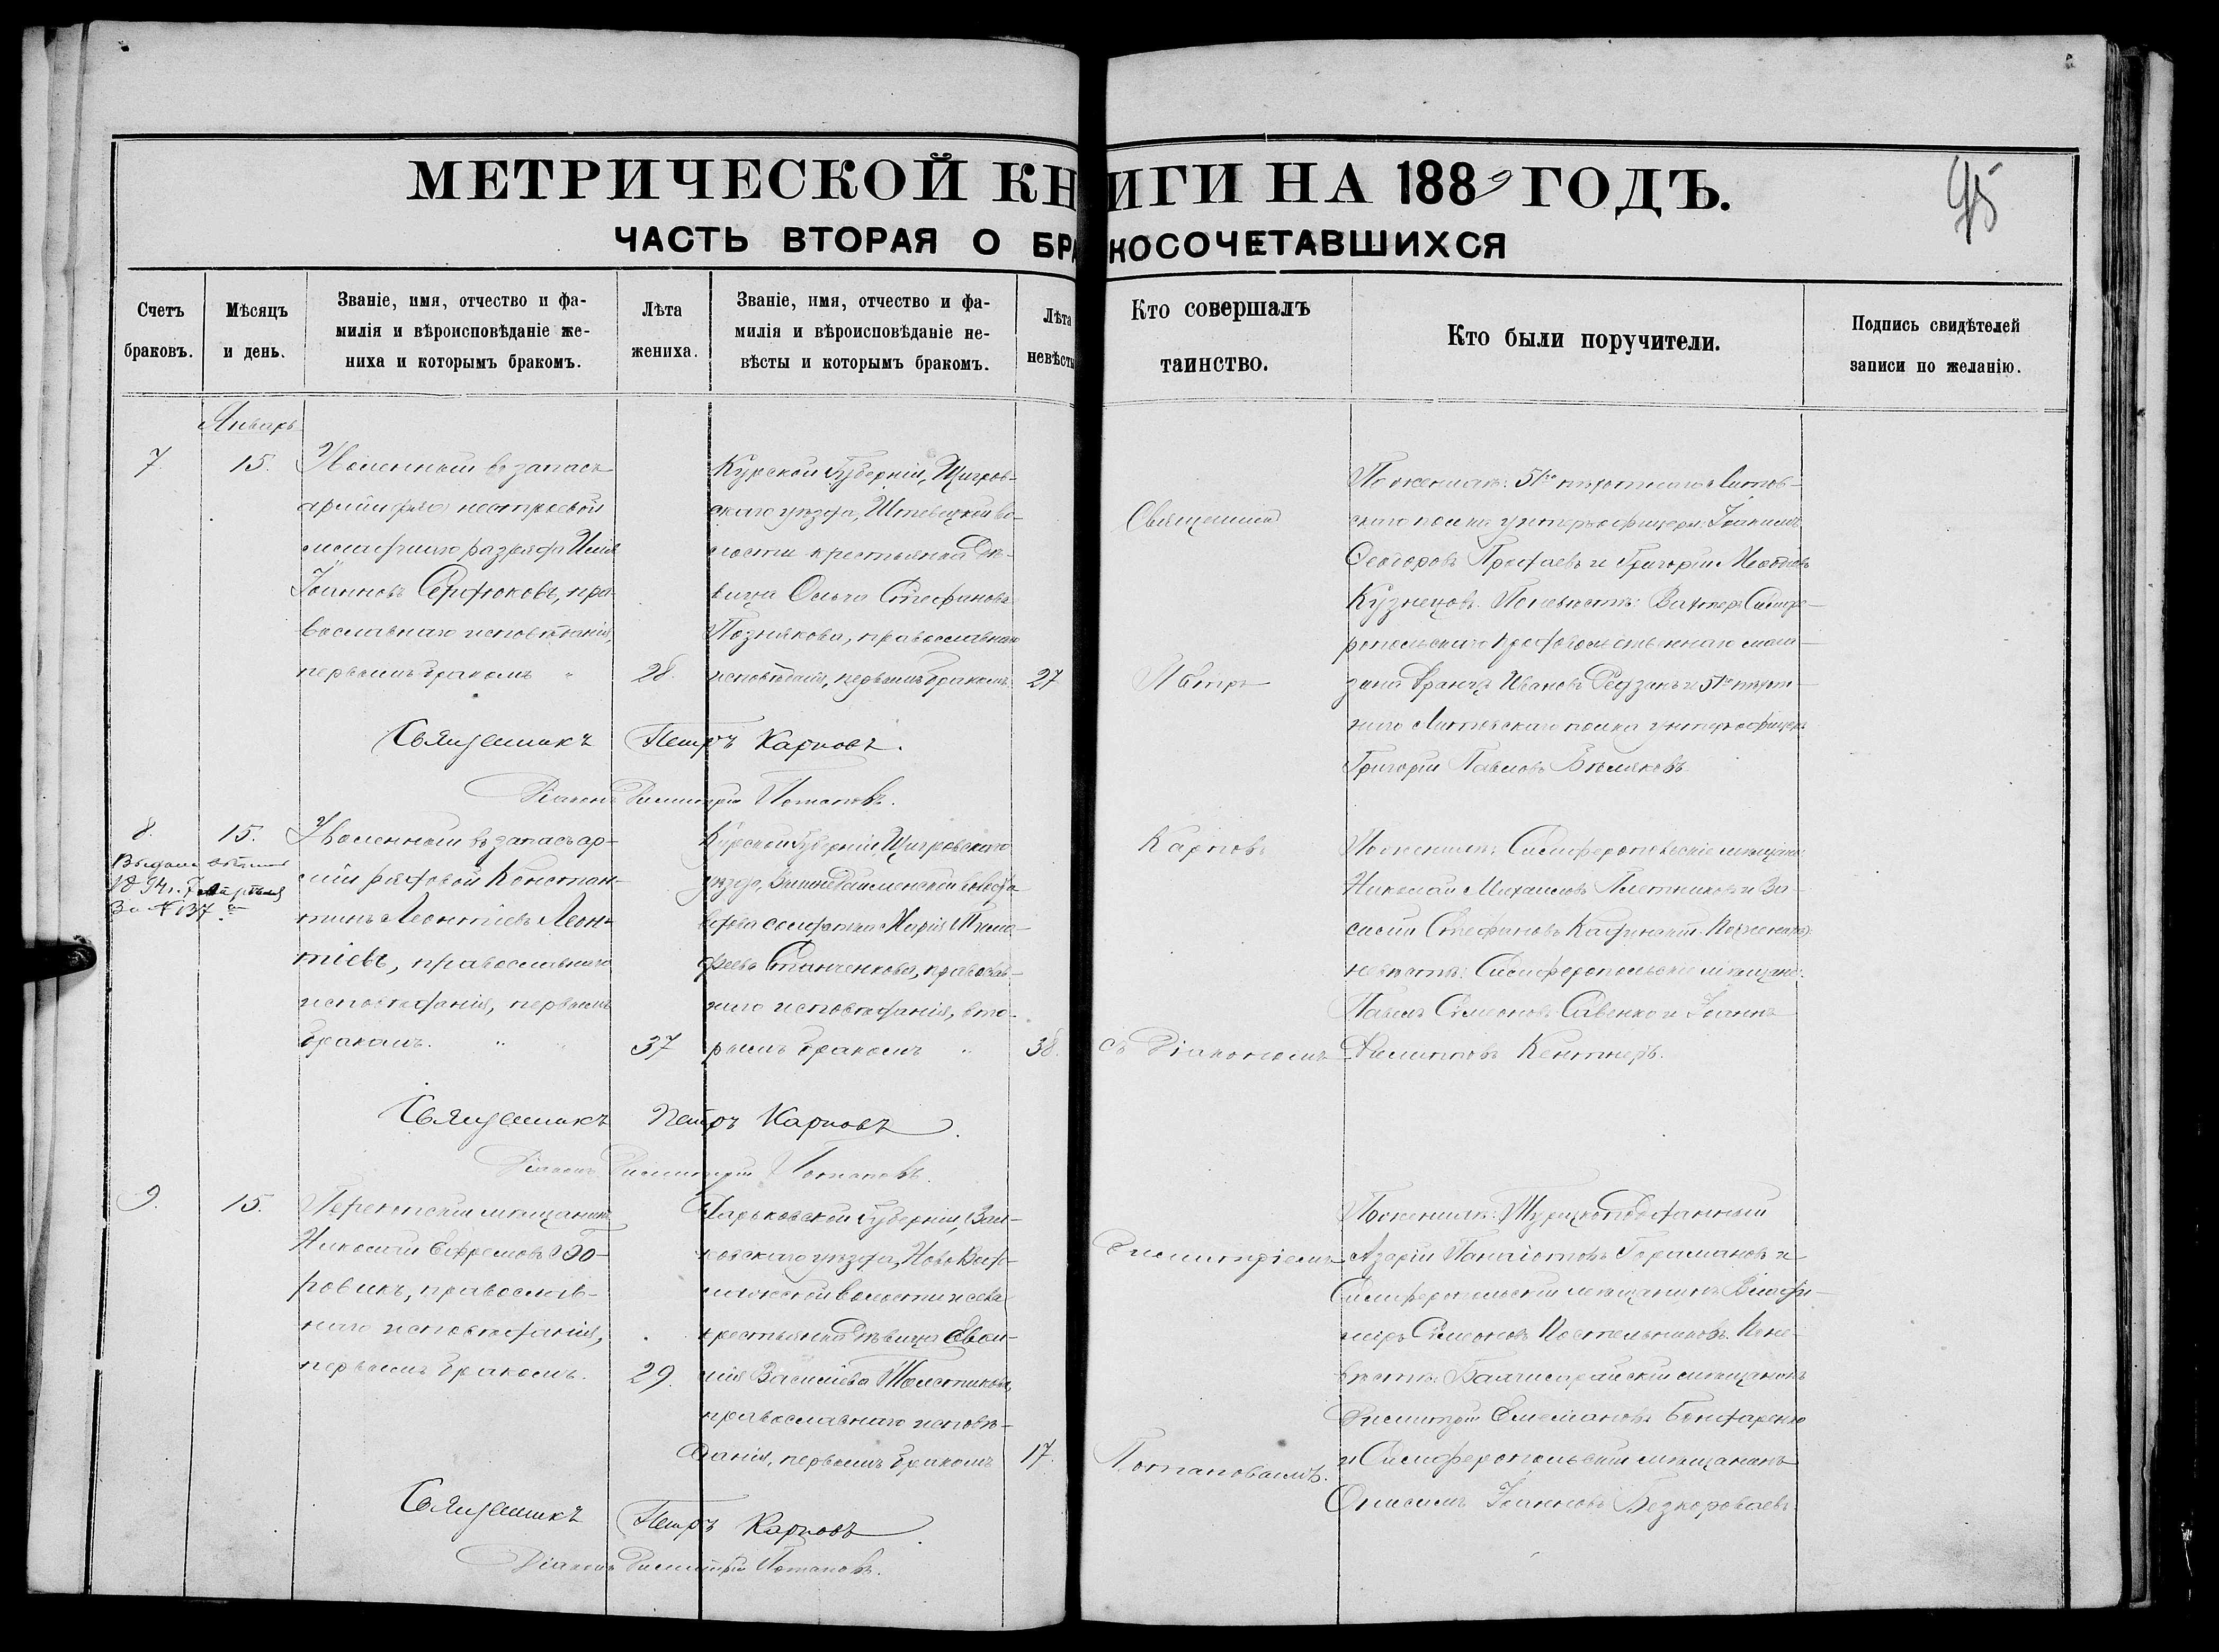 МЕТРИЧЕСКОЙ КНИГИ НА 1889 ГОДЪ.
95
ЧАСТЬ ВТОРАЯ О БРАКОСОЧЕТАВШИХСЯ
Счетъ браковъ.
Мѣсяцъ и день.
Званіе, имя, отчество и фа-
милія и вѣроисповѣданіе же-
ниха и которымъ бракомъ.
Лѣта жениха.
Званіе, имя, отчество и фа-
милія и вѣроисповѣданіе не-
вѣсты и которымъ бракомъ.
Лѣта невѣсты
Кто совершалъ
таинство.
Кто были поручители.
Подпись свидѣтелей
записи по желанію.
Январь
7.
15.
Уволенный въ запасъ
арміи рядовой нестроевой
младшаго разряда Илія
Іоанновъ Сердюковъ, пра-
вославнаго исповѣданія,
первымъ бракомъ "
28.
Курской Губерніи, Щигров-
скаго уѣзда, во-
лости крестьянка дѣ-
вица Ольга Стефанова
Позднякова, православнаго
исповѣданія, первымъ бракомъ.
27
Священникъ
Петръ
По женихѣ: 51го пѣхотнаго Литов-
скаго полка унтеръ-офицеры: Іоакимъ
Ѳеодоровъ и Григорій
Кузнецовъ. По невѣстѣ: Вахтеръ Симфе-
ропольскаго продовольственнаго мага-
зина Францъ Ивановъ и 51го пѣхот-
наго Литовскаго полка унтеръ-офицеръ
Григорій Павловъ Бѣляковъ.
Священникъ Петръ Карповъ.
Діаконъ Димитрій Потаповъ.
8.
15.
Выдано
1894 г.
За № 137.
Уволенный въ запасъ ар-
міи рядовой Констан-
тинъ Леонтіевъ Леон-
тіевъ, православнаго
исповѣданія, первымъ
бракомъ. " "
37
Курской Губерніи, Щигровскаго
уѣзда, волости
вдова солдатка Марія Тимо-
феева Станченкова, православ-
наго исповѣданія, вто-
рымъ бракомъ "
38.
Карповъ
съ Діакономъ
По женихѣ: Симферопольскіе мѣщане:
Николай Михаиловъ Плотниковъ и Ва-
силій Стефановъ По
невѣстѣ: Симферопольскіе мѣщане:
Павелъ Симеоновъ Савенко и Іоаннъ
Филипповъ Кентнеръ.
Священникъ Петръ Карповъ.
Діаконъ Димитрій Потаповъ.
9.
15.
Перекопскій мѣщанинъ
Николай Ефремовъ Бо-
ровикъ, православ-
наго исповѣданія,
первымъ бракомъ.
29.
Харьковской Губерніи, Вал-
ковскаго уѣзда, Ново-Водо-
лажской волости и села
крестьянка дѣвица Евѳи-
мія Василіева Толстикова,
православнаго исповѣ-
данія, первымъ бракомъ
17.
Димитріемъ
Потаповымъ.
По женихѣ: Турецкоподданный
Азарій Панаіотовъ и
Симферопольскій мѣщанинъ Влади-
міръ Симеоновъ Постельниковъ. По не-
вѣстѣ: Бахчисарайскій мѣщанинъ
Димитрій Бондаренко
и Симферопольскій мѣщанинъ
Онисимъ Іоанновъ
Священникъ Петръ Карповъ
Діаконъ Димитрій Потаповъ.